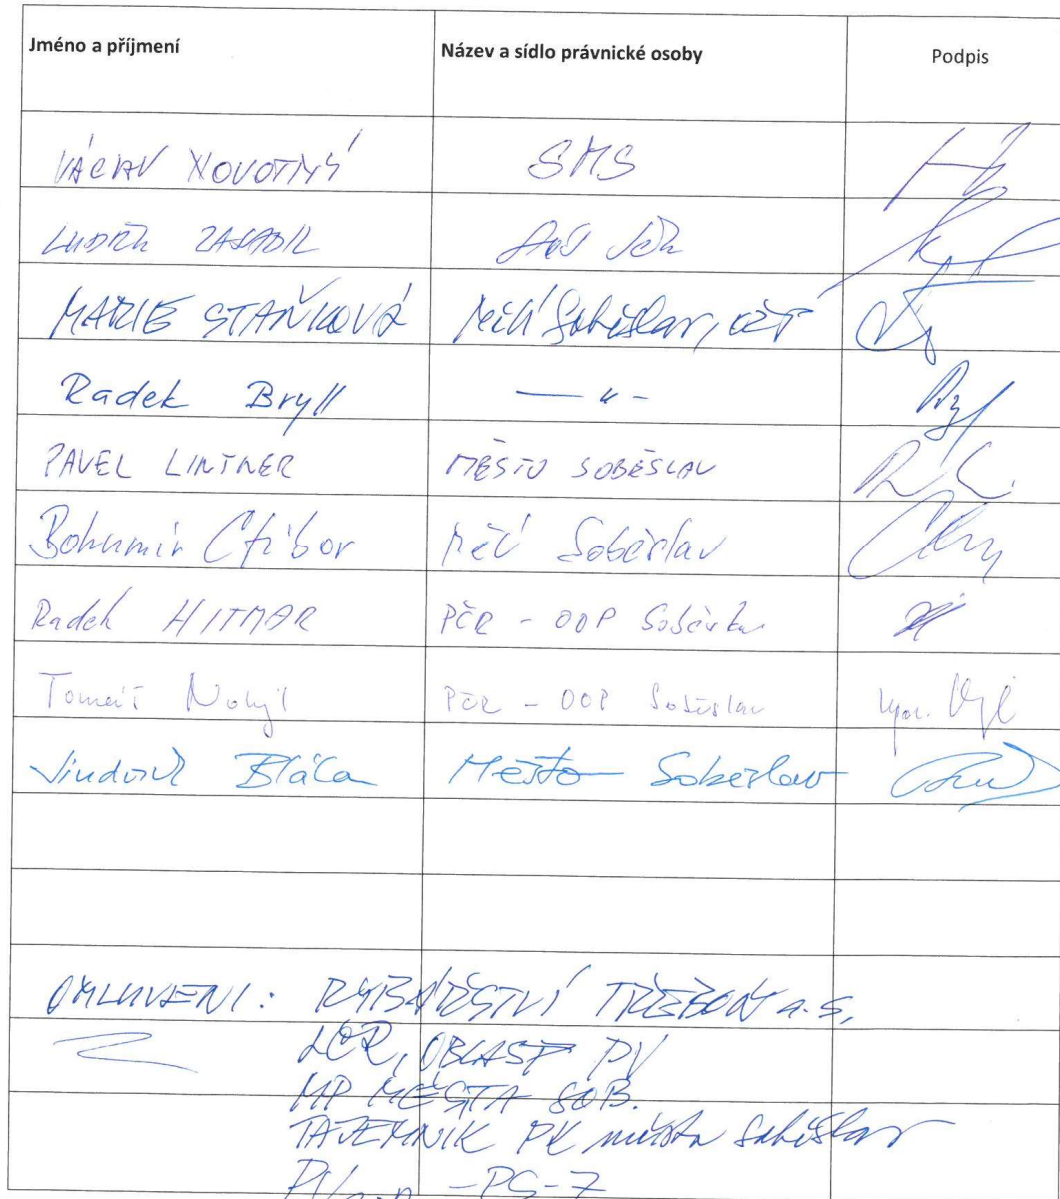 Jméno a příjmení Název a sídlo právnické osoby Podpis
VÁCLAV NOVOTNÝ SMS
LUDĚK ZASADIL
MARIE STAŇKOVÁ MěÚ Soběslav, OŽP
Radek Bryll — " -
PAVEL LINTNER MĚSTO SOBĚSLAV
Bohumír Ctibor MěÚ Soběslav
Radek HITMAR PČR - OOP Soběslav
Tomáš Nohejl PČR - OOP Soběslav
Jindřich Bláha Město Soběslav
OMLUVENI: RYBÁŘSTVÍ TŘEBOŇ a.s,
LČR, OBLAST PV
MP MĚSTA SOB.
TAJEMNÍK PK města Soběslav
-PS-7